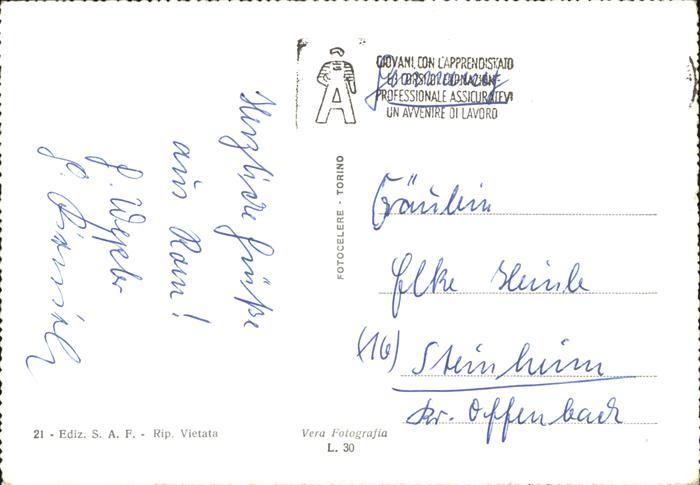 Herzliche Grüße
aus Rom!
GIOVANI, CON L'APPRENDISTATO
PROFESSIONALE ASSICURATEVI
UN AVVENIRE DI LAVORO
A
FOTOCELERE - TORINO
Fräulein
Elke
(16) Steinheim
Kr. Offenbach
21 - Ediz. S. A. F. - Rip. Vietata
Vera Fotografia
L. 30